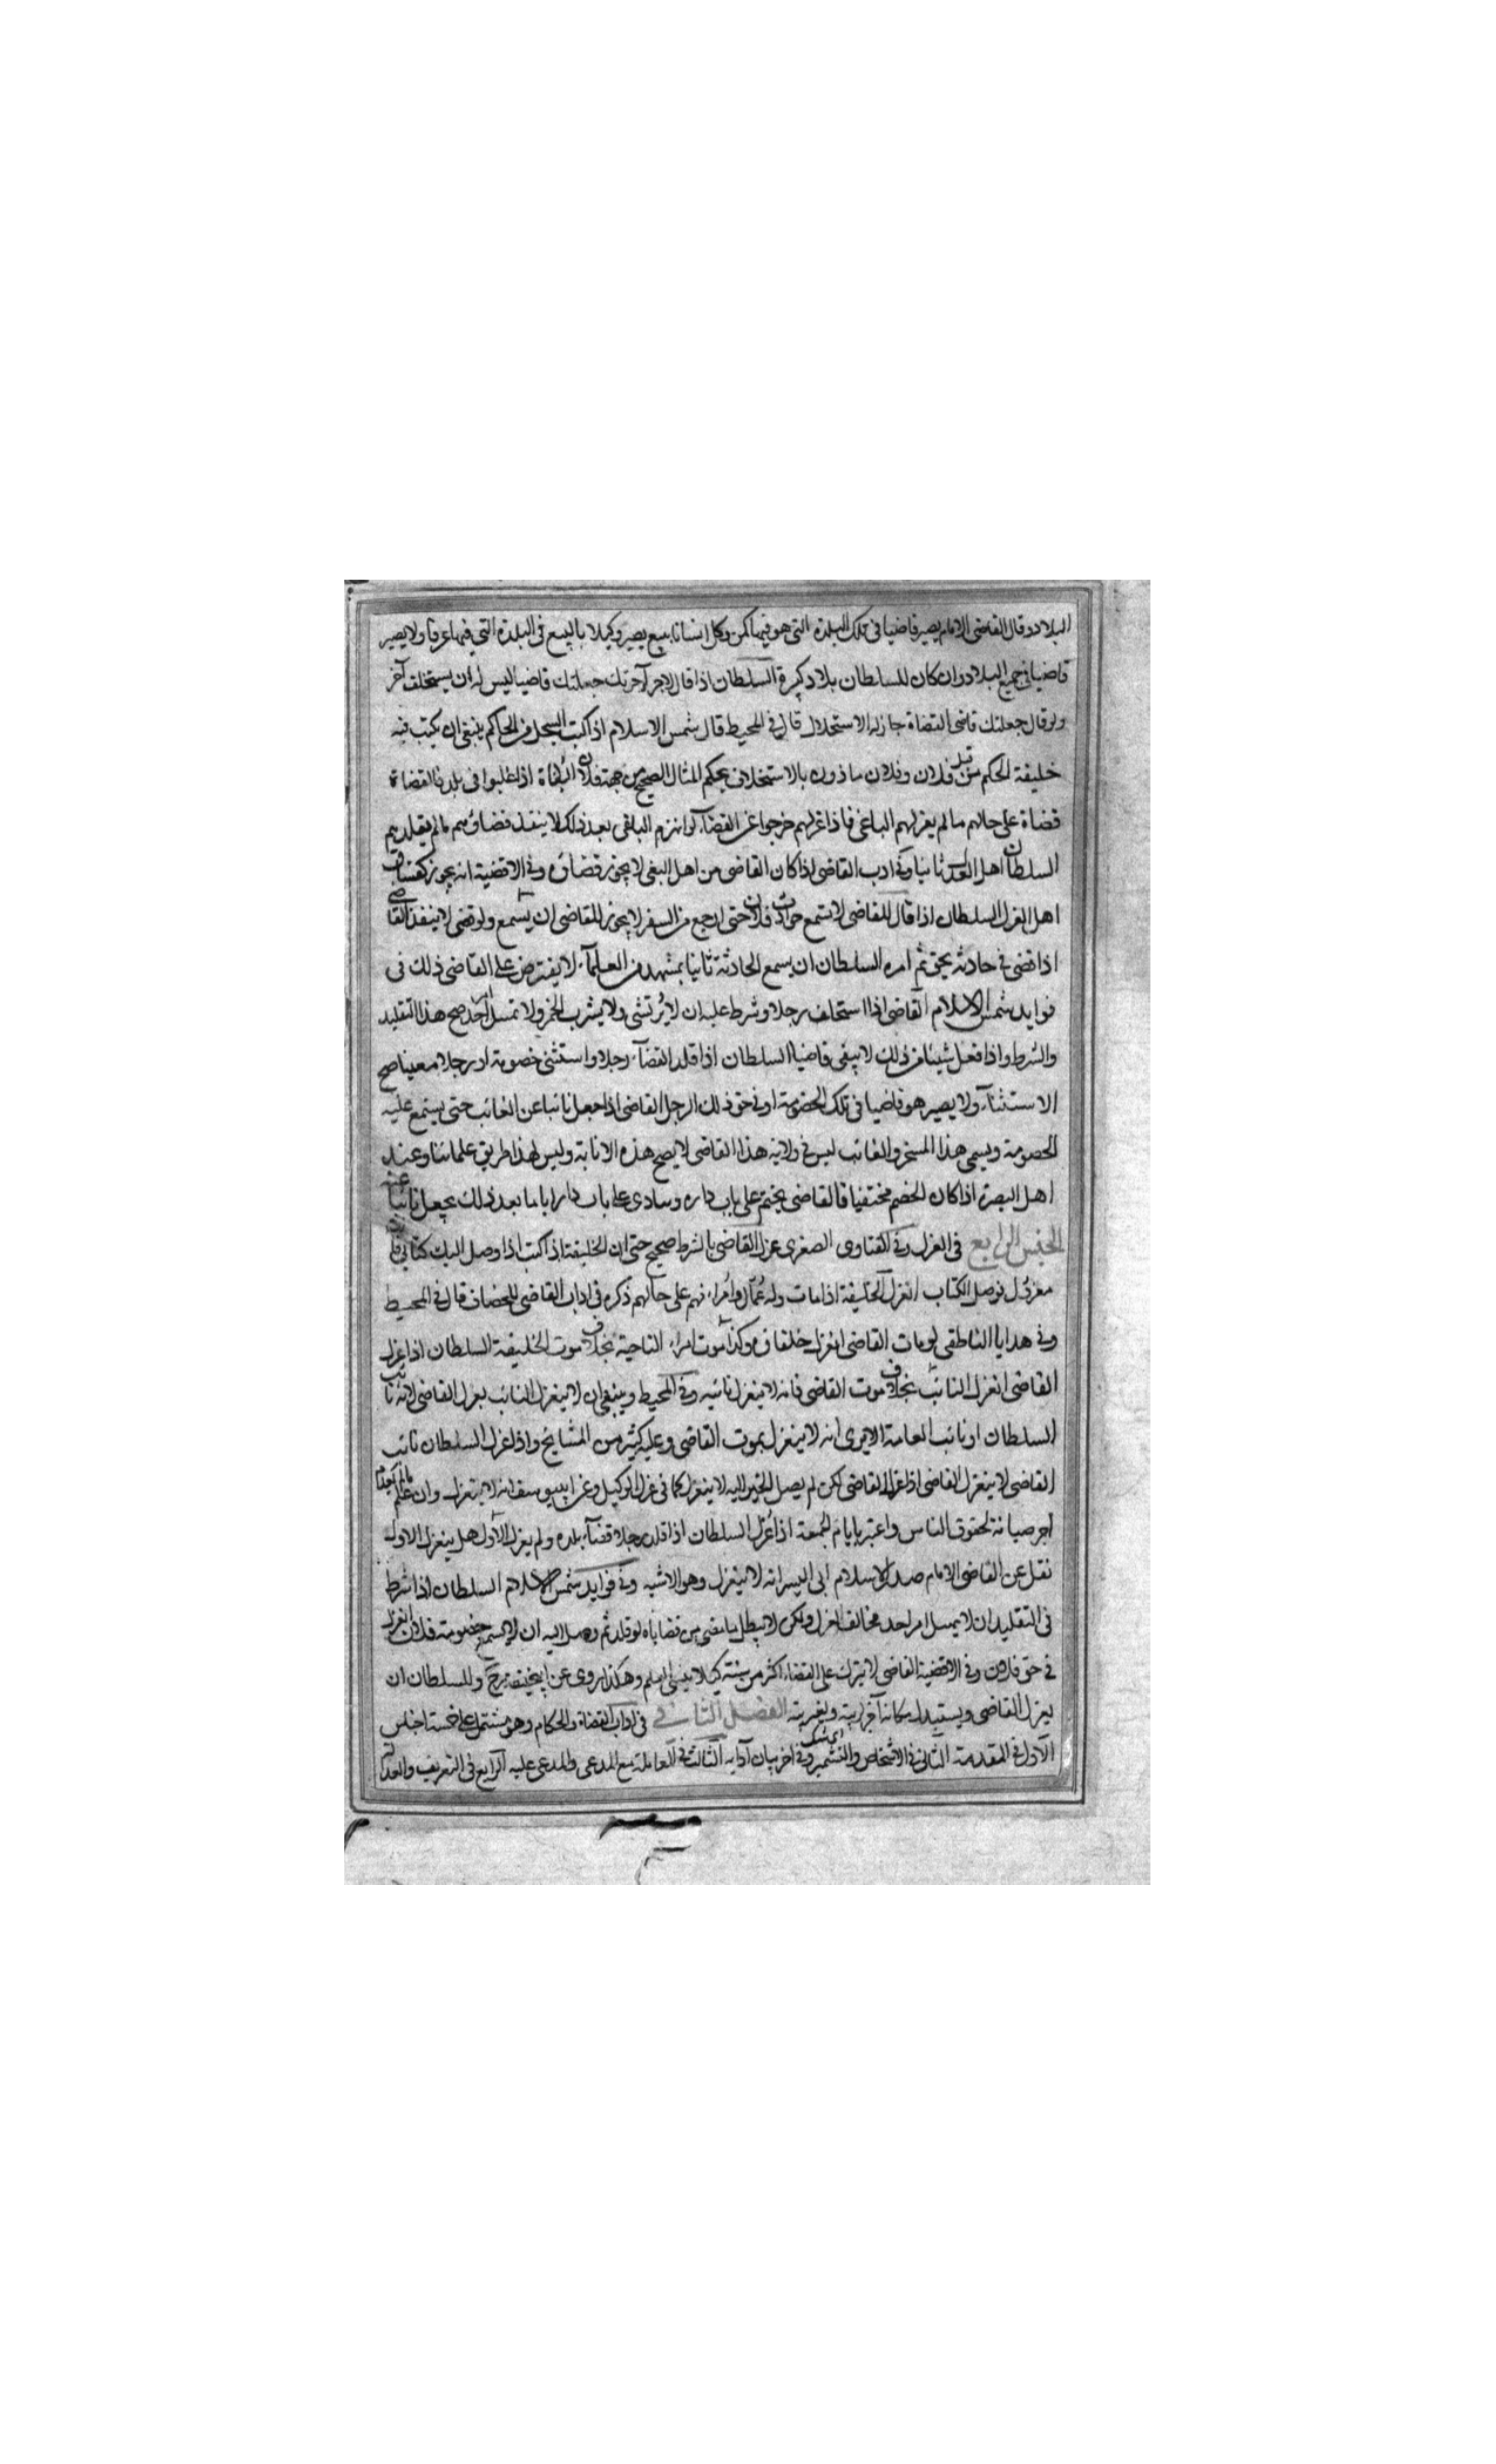 البلاد وقال القاضى الامام يصير قاضيا فى تلك البلدة التى هو فيها كمن وكل انسانا ببيع يصير وكيلا بالبيع فى البلدة التى فيها عرفا ولا يصير
قاضيا فى جميع البلاد وان كان للسلطان بلاد كثيرة السلطان اذا قال لاجر آجرتك جعلتك قاضيا ليس له ان يستخلف آخر
ولو قال جعلتك قاضى القضاة جاز له الاستخلاف قال فى المحيط قال شمس الاسلام اذا كتب السجل من الحاكم ينبغى ان يكتب فيه
خليفة الحكم من قبل فلان وفلان ماذون بالاستخلاف بحكم المثال الصحيح من جهة فلان البغاة اذا غلبوا فى بلد فالقضاة
قضاة على حالهم ما لم يعزلهم الباغى فاذا عزلهم خرجوا عن القضاء لو انهزم الباغى بعد ذلك لا ينفذ قضاؤهم ما لم يقلدهم
السلطان اهل العدل ثانيا وفى ادب القاضى اذا كان القاضى من اهل البغى لا يجوز قضاؤه وفى الاقضية انه يجوز كفساق
اهل العدل السلطان اذا قال للقاضى لا تسمع حوادث فلان حتى ارجع من السفر لا يجوز للقاضى ان يسمع ولو قضى لا ينفذ القاضى
اذا قضى فى حادثة بحق ثم امره السلطان ان يسمع الحادثة ثانيا بمشهد من العلمآء لا يفترض على القاضى ذلك فى
فوايد شمس الاسلام القاضى اذا استخلف رجلا وشرط عليه ان لا يرتشى ولا يشرب الخمر ولا تمسل احد صح هذا التقليد
والشرط واذا فعل شيئا من ذلك لا يبقى قاضيا السلطان اذا قلد القضآء رجلا واستثنى خصومة او رجلا معينا صح
الاستثنآء ولا يصير هو قاضيا فى تلك الخصومة او فى حق ذلك الرجل القاضى اذا جعل نائبا عن الغائب حتى يستمع عليه
الخصومة ويسمى هذا المسخر والغائب ليس فى ولاية هذا القاضى لا يصح هذه الانابة وليس لهذا طريق علمائنا وعند
اهل البصرة اذا كان الخصم مختفيا فالقاضى يختم على باب داره وينادى على باب داره اياما بعد ذلك يجعل نائبا عنه
الجنس الرابع فى العزل وفى الفتاوى الصغرى عزل القاضى بالشرط صحيح حتى ان الخليفة اذا كتب اذا وصل اليك كتابى فانت
معزول فوصل الكتاب انعزل الخليفة اذا مات وله عمال وامراء فهم على حالهم ذكره فى اداب القاضى للخصاف قال فى المحيط
وفى هدايا الناطفى لو مات القاضى انعزل خلفاؤه وكذا موت امراء الناحية بخلاف موت الخليفة السلطان اذا عزل
القاضى انعزل النائب بخلاف موت القاضى فانه لا ينعزل نائبه وفى المحيط وينبغى ان لا ينعزل النائب بعزل القاضى لانه نائب
السلطان او نائب العامة الا يرى انه لا ينعزل بموت القاضى وعليه كثير من المشايخ واذا عزل السلطان نائب
القاضى لا ينعزل القاضى اذا عزل القاضى لكن لم يصل الخبر اليه لا ينعزل كما فى عزل الوكيل وعن ابى يوسف انه لا ينعزل وان علم ما لم يقلد
آخر صيانة لحقوق الناس واعتبر بامام الجمعة اذا عزل السلطان اذا قلد رجلا قضآء بلدة ولم يعزل الاول هل ينعزل الاول
نقل عن القاضى الامام صدر الاسلام ابى اليسر انه لا ينعزل وهو الاشبه وفى فوايد شمس الاسلام السلطان اذا شرط
فى التقليد ان لا يمسل امر احد فخالف انعزل ولكن لا يبطل ما مضى من قضاياه لو قلد ثم وصل اليه ان لا يسمع خصومة فلان انعزل
فى حق فلان وفى الاقضية القاضى لا يترك على القضاء اكثر من سنة كيلا ينسى العلم وهكذا روى عن ابى حنيفة رح وللسلطان ان
يعزل القاضى ويستبدل مكانه آخر لريبة ولغير ريبة الفصل الثانى فى اداب القضاة والحكام وهو مشتمل على خمسة اجناس
الاول فى المقدمة الثانى فى الاشخاص والتشمير وفى آخر بيان آدابه الثالث فى المعاملة مع المدعى والمدعى عليه الرابع فى التعريف والعدالة